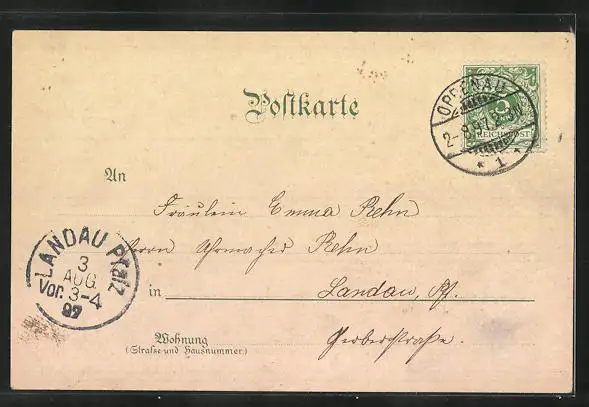 Postkarte
OPPENAU
2-8.97.
REICHSPOST
* 1 *
An
Fräulein Emma Rehn
Herrn Uhrmacher Rehn
in Landau, Pf.
Gerberstraße.
Wohnung
(Strafse und Hausnummer.)
LANDAU Pfalz
3
AUG.
Vor. 3-4
97